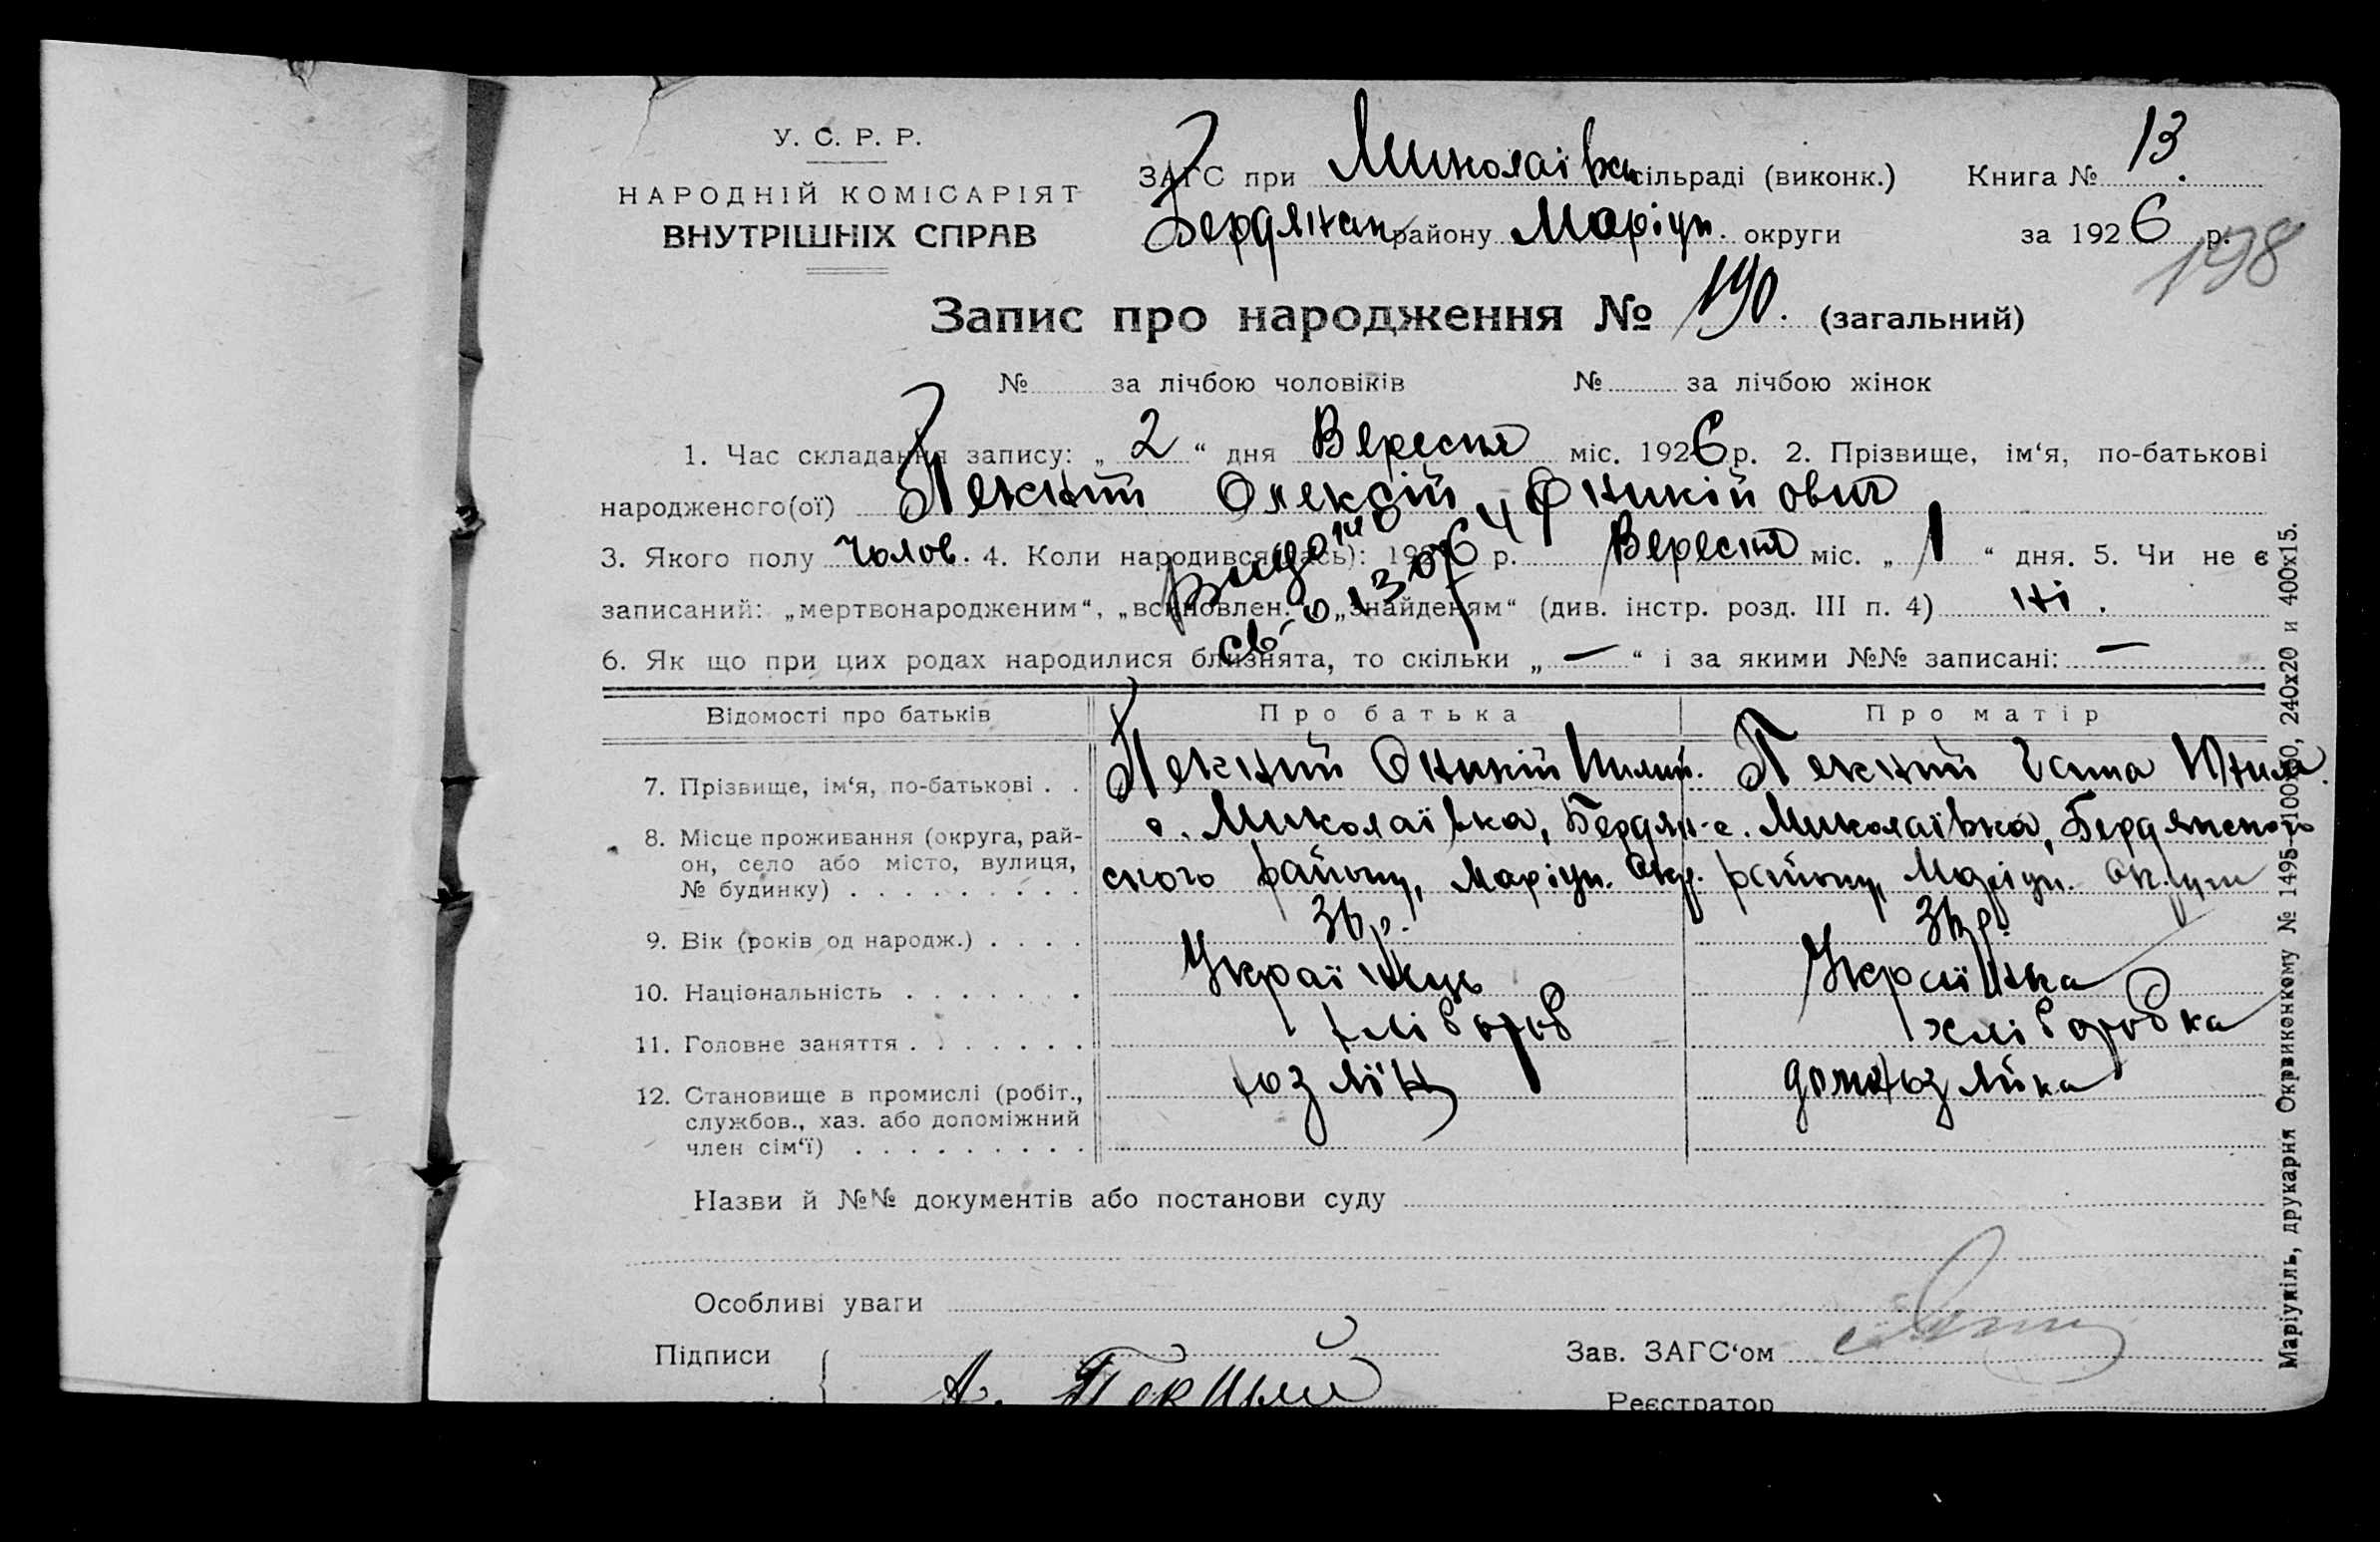 У. С. Р. Р.
НАРОДНІЙ КОМІСАРІЯТ
ВНУТРІШНІХ СПРАВ
ЗАГС при Миколаївськ сільраді (виконк.) Книга № 13.
Бердянськ району Маріуп. округи за 1926 р.
198
Запис про народження № 190. (загальний)
№ за лічбою чоловіків № за лічбою жінок
1. Час складання запису: „ 2 “ дня Вересня міс. 1926 р. 2. Прізвище, ім‘я, по-батькові
народженого(ої) Олексій
3. Якого полу чолов. 4. Коли народився(лась): 1926 р. Вересня міс. „ 1 “ дня. 5. Чи не є
записаний: „мертвонародженим“, „всиновлен.“ „знайденям“ (див. інстр. розд. III п. 4) ні.
6. Як що при цих родах народилися близнята, то скільки „ — “ і за якими №№ записані: —
Відомості про батьків Про батька Про матір
7. Прізвище, ім‘я, по-батькові . .
8. Місце проживання (округа, рай-
он, село або місто, вулиця,
№ будинку) . . . . . . . . .
с. Миколаївка, Бердян-
ского району, Маріуп. окр.
с. Миколаївка, Бердянского
району, Маріуп. округи
9. Вік (років од народж.) . . . .
10. Національність . . . . . . . Українець Українка
11. Головне заняття . . . . . . . хлібороб хліборобка
12. Становище в промислі (робіт.,
службов., хаз. або допоміжний
член сім‘ї) . . . . . . . . .
хозяїн домохозяйка
Назви й №№ документів або постанови суду
Особливі уваги
Підписи Зав. ЗАГС‘ом
А.
Реєстратор
Маріупіль, друкарня Окрвиконкому № 1495—100х100, 240х20 и 400х15.